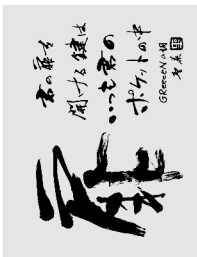 君の扉を
開ける鍵は
いつも君の
ポケットの中
GReeeeNの詞